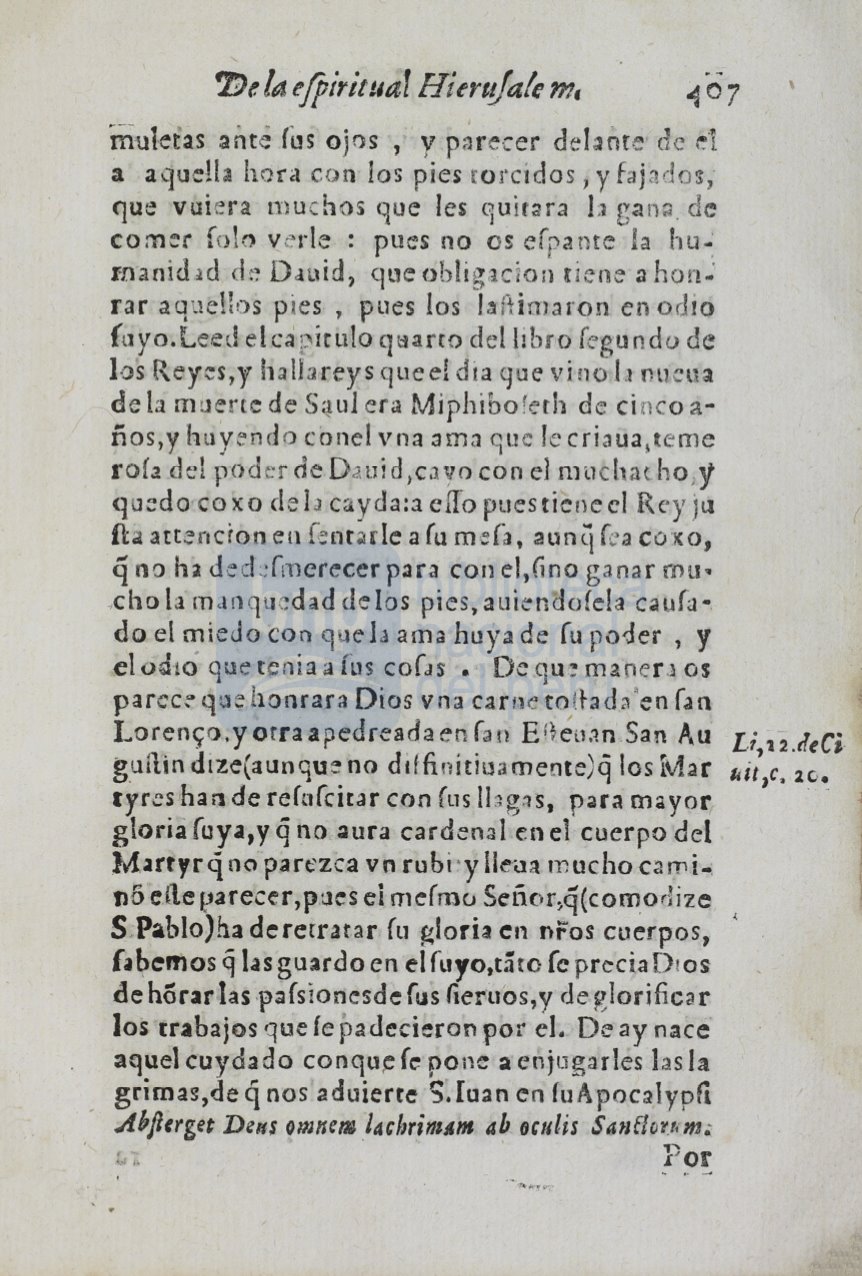 De la eſpiritual Hieruſalem. 407
muletas ante ſus ojos , y parecer delante de el
a aquella hora con los pies torcidos, y fajados,
que vuiera muchos que les quitara la gana de
comer ſolo verle : pues no os eſpante la hu-
manidad de Dauid, que obligacion tiene a hon-
rar aquellos pies , pues los laſtimaron en odio
ſuyo. Leed el capitulo quarto del libro ſegundo de
los Reyes, y hallareys que el dia que vino la nueua
de la muerte de Saul era Miphiboſeth de cinco a-
ños, y huyendo con el vna ama que le criaua, teme
roſa del poder de Dauid, cayo con el muchacho, y
quedo coxo de la cayda: a eſſo pues tiene el Rey ju
ſta attencion en ſentarle a ſu meſa, aunq̃ ſea coxo,
q̃ no ha de deſmerecer para con el, ſino ganar mu-
cho la manquedad de los pies, auiendoſela cauſa-
do el miedo con que la ama huya de ſu poder , y
el odio que tenia a ſus coſas . De que manera os
parece que honrara Dios vna carne toſtada en ſan
Lorenço, y otra apedreada en ſan Eſteuan San Au
guſtin dize (aunque no diffinitiuamente) q̃ los Mar
tyres han de reſuſcitar con ſus llagas, para mayor
gloria ſuya, y q̃ no aura cardenal en el cuerpo del
Martyr q̃ no parezca vn rubi y lleua mucho cami-
nõ eſte parecer, pues el meſmo Señor, q̃ (como dize
S Pablo) ha de retratar ſu gloria en nr̃os cuerpos,
ſabemos q̃ las guardo en el ſuyo, tãto ſe precia Dios
de hõrar las paſsiones de ſus ſieruos, y de glorificar
los trabajos que ſe padecieron por el. De ay nace
aquel cuydado con que ſe pone a enjugarles las la
grimas, de q̃ nos aduierte S. Iuan en ſu Apocalypſi
Abſterget Deus omnem lachrimam ab oculis Sanctorum.
Por
Li, 22. de Ci
uit, c. 20.